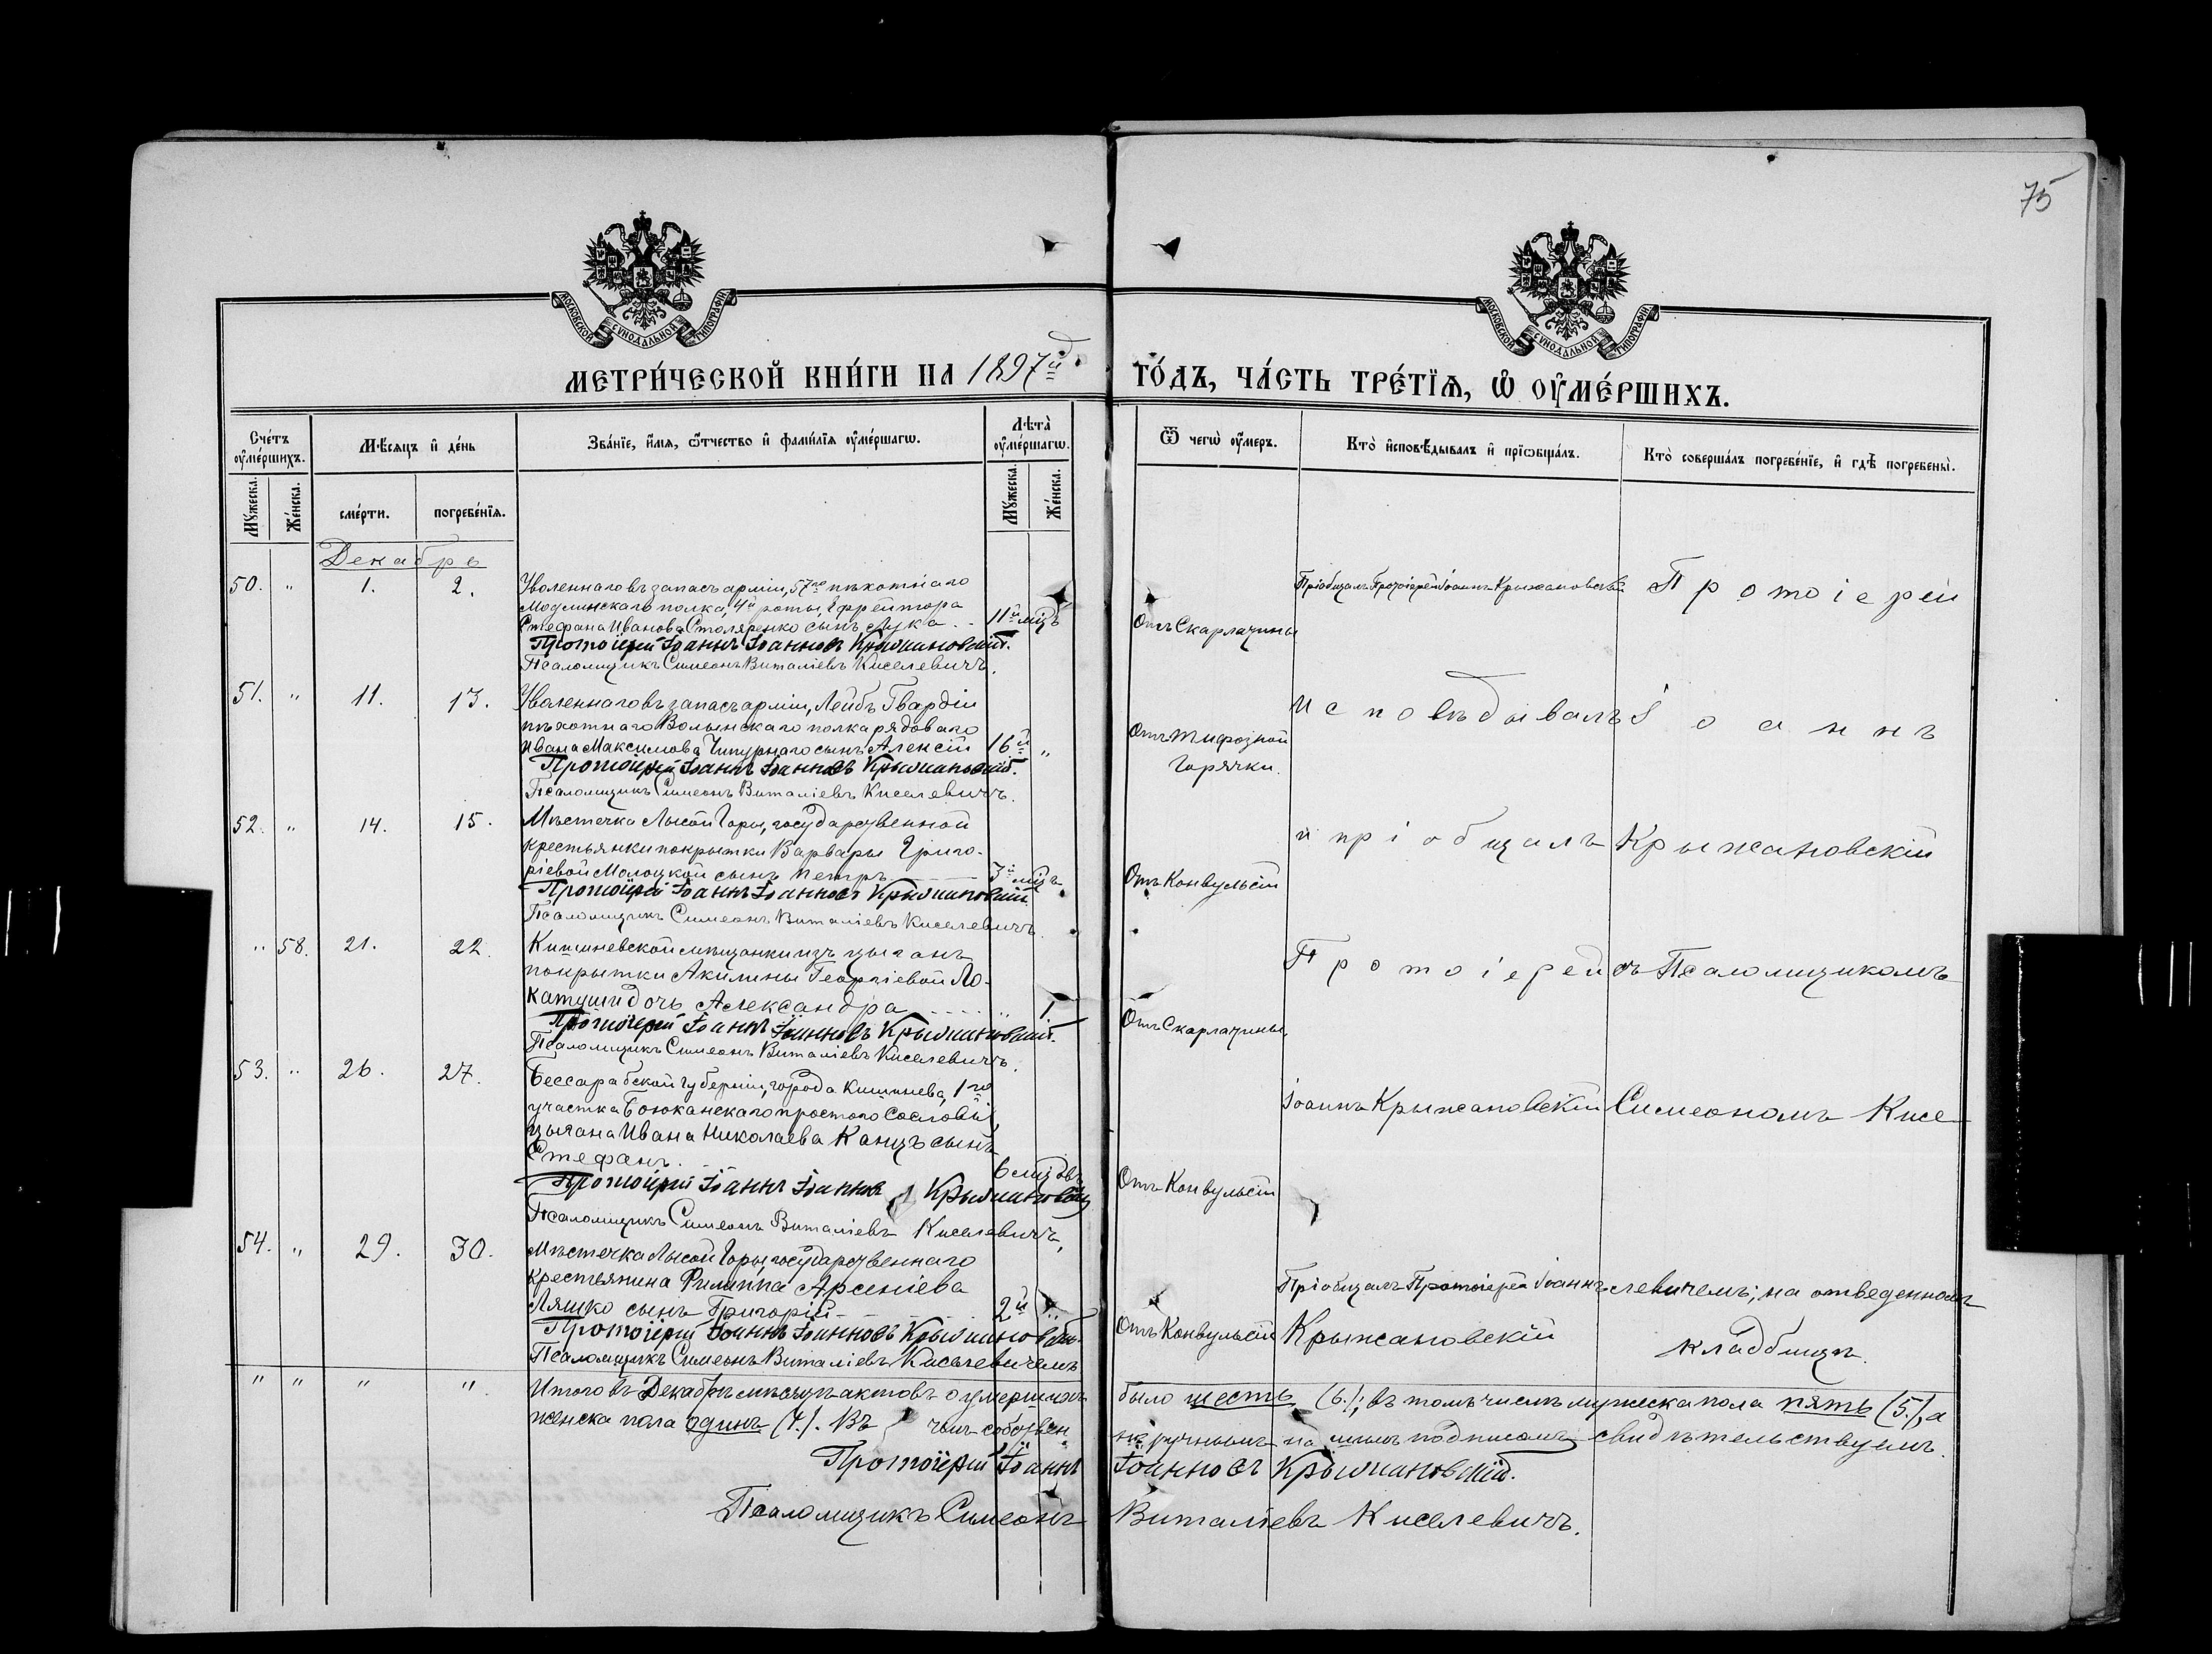 75
МОСКОВСКОЙ СѴНОДАЛЬНОЙ ТИПОГРАФІИ
МОСКОВСКОЙ СѴНОДАЛЬНОЙ ТИПОГРАФІИ
МЕТРИ́ЧЕСКОЙ КНИ́ГИ НА 1897й ГО́ДЪ, ЧА́СТЬ ТРЕ́ТЇѦ, Ѡ҆ ОУ҆МЕ́РШИХЪ.
Сче́тъ оу҆ме́ршихъ.
Мꙋ́жеска.
Же́нска.
Мѣ́сяцъ и҆ де́нь
сме́рти.
погребе́нїѧ.
Зва́нїе, и҆́мѧ, ѻ҆́тчество и҆ фами́лїѧ оу҆ме́ршагѡ.
Лѣ̑та оу҆ме́ршагѡ.
Мꙋ́жеска.
Же́нска.
Ѿ чегѡ̀ оу҆́меръ.
Кто̀ и҆сповѣ́дывалъ и҆ прїѡбща́лъ.
Кто̀ соверша́лъ погребе́нїе, и҆ гдѣ̀ погребены̀.
Декабрь
50. " 1. 2. Уволеннаго въ запасъ арміи, 57го пѣхотнаго
Модлинскаго полка, 4й роты, Ефрейтора
Стефана Иванова Столяренко сынъ Лука - - 11й мцъ
Протоіерей Іоаннъ Іоанновъ Крыжановскій.
Псаломщикъ Симеонъ Виталіевъ Киселевичъ.
Отъ Скарлатины
Пріобщалъ Протоіерей Іоаннъ Крыжановскій
Протоіерей
51. " 11. 13. Уволеннаго въ запасъ арміи, Лейбъ Гвардіи
пѣхотнаго Волынскаго полка рядоваго
Ивана Максимова Чипурнаго сынъ Алексій 16й "
Протоіерей Іоаннъ Іоанновъ Крыжановскій.
Псаломщикъ Симеонъ Виталіевъ Киселевичъ.
Отъ тифозной
горячки.
Исповѣдывалъ
Іоаннъ
52. " 14. 15. Мѣстечка Лысой Горы, государственной
крестьянки покрытки Варвары Григо-
ріевой Молоцкой сынъ Петръ 3й мцъ
Протоіерей Іоаннъ Іоанновъ Крыжановскій.
Псаломщикъ Симеонъ Виталіевъ Киселевичъ.
Отъ Конвульсіи
и пріобщалъ
Крыжановскій
" 58. 21. 22. Кишиневской мѣщанки изъ цыганъ
покрытки Акилины Георгіевой Ло-
катуши дочь Александра - - - - " 1.
Протоіерей Іоаннъ Іоанновъ Крыжановскій.
Псаломщикъ Симеонъ Виталіевъ Киселевичъ.
Отъ Скарлатины.
Протоіерей
съ Псаломщикомъ
53. " 26. 27. Бессарабской губерніи, города Кишинева, 1го
участка Боюканскаго простого сословія,
цыгана Ивана Николаева Канцъ сынъ
Стефанъ. 6 мцовъ
Протоіерей Іоаннъ Іоанновъ Крыжановскій
Псаломщикъ Симеонъ Виталіевъ Киселевичъ,
Отъ Конвульсіи
Іоаннъ Крыжановскій
Симеономъ Кисе-
54. " 29. 30. Мѣстечка Лысой Горы государственнаго
крестьянина Филиппа Арсеніева
Ляшко сынъ Григорій - - 2й "
Протоіерей Іоаннъ Іоанновъ Крыжановскій.
Псаломщикъ Симеонъ Виталіевъ Киселевичемъ
Отъ Конвульсіи
Пріобщалъ Протоіерей Іоаннъ
Крыжановскій
левичемъ; на отведенномъ
кладбищѣ.
" " " " Итого въ Декабрѣ мѣсяцѣ актовъ о умершихъ было шесть (6.); въ томъ числѣ мужеска пола пять (5.), а
женска пола одинъ (1.). Въ чемъ собствен-
норучнымъ нашимъ подписомъ свидѣтельствуемъ.
Протоіерей Іоаннъ Іоанновъ Крыжановскій.
Псаломщикъ Симеонъ Виталіевъ Киселевичъ.